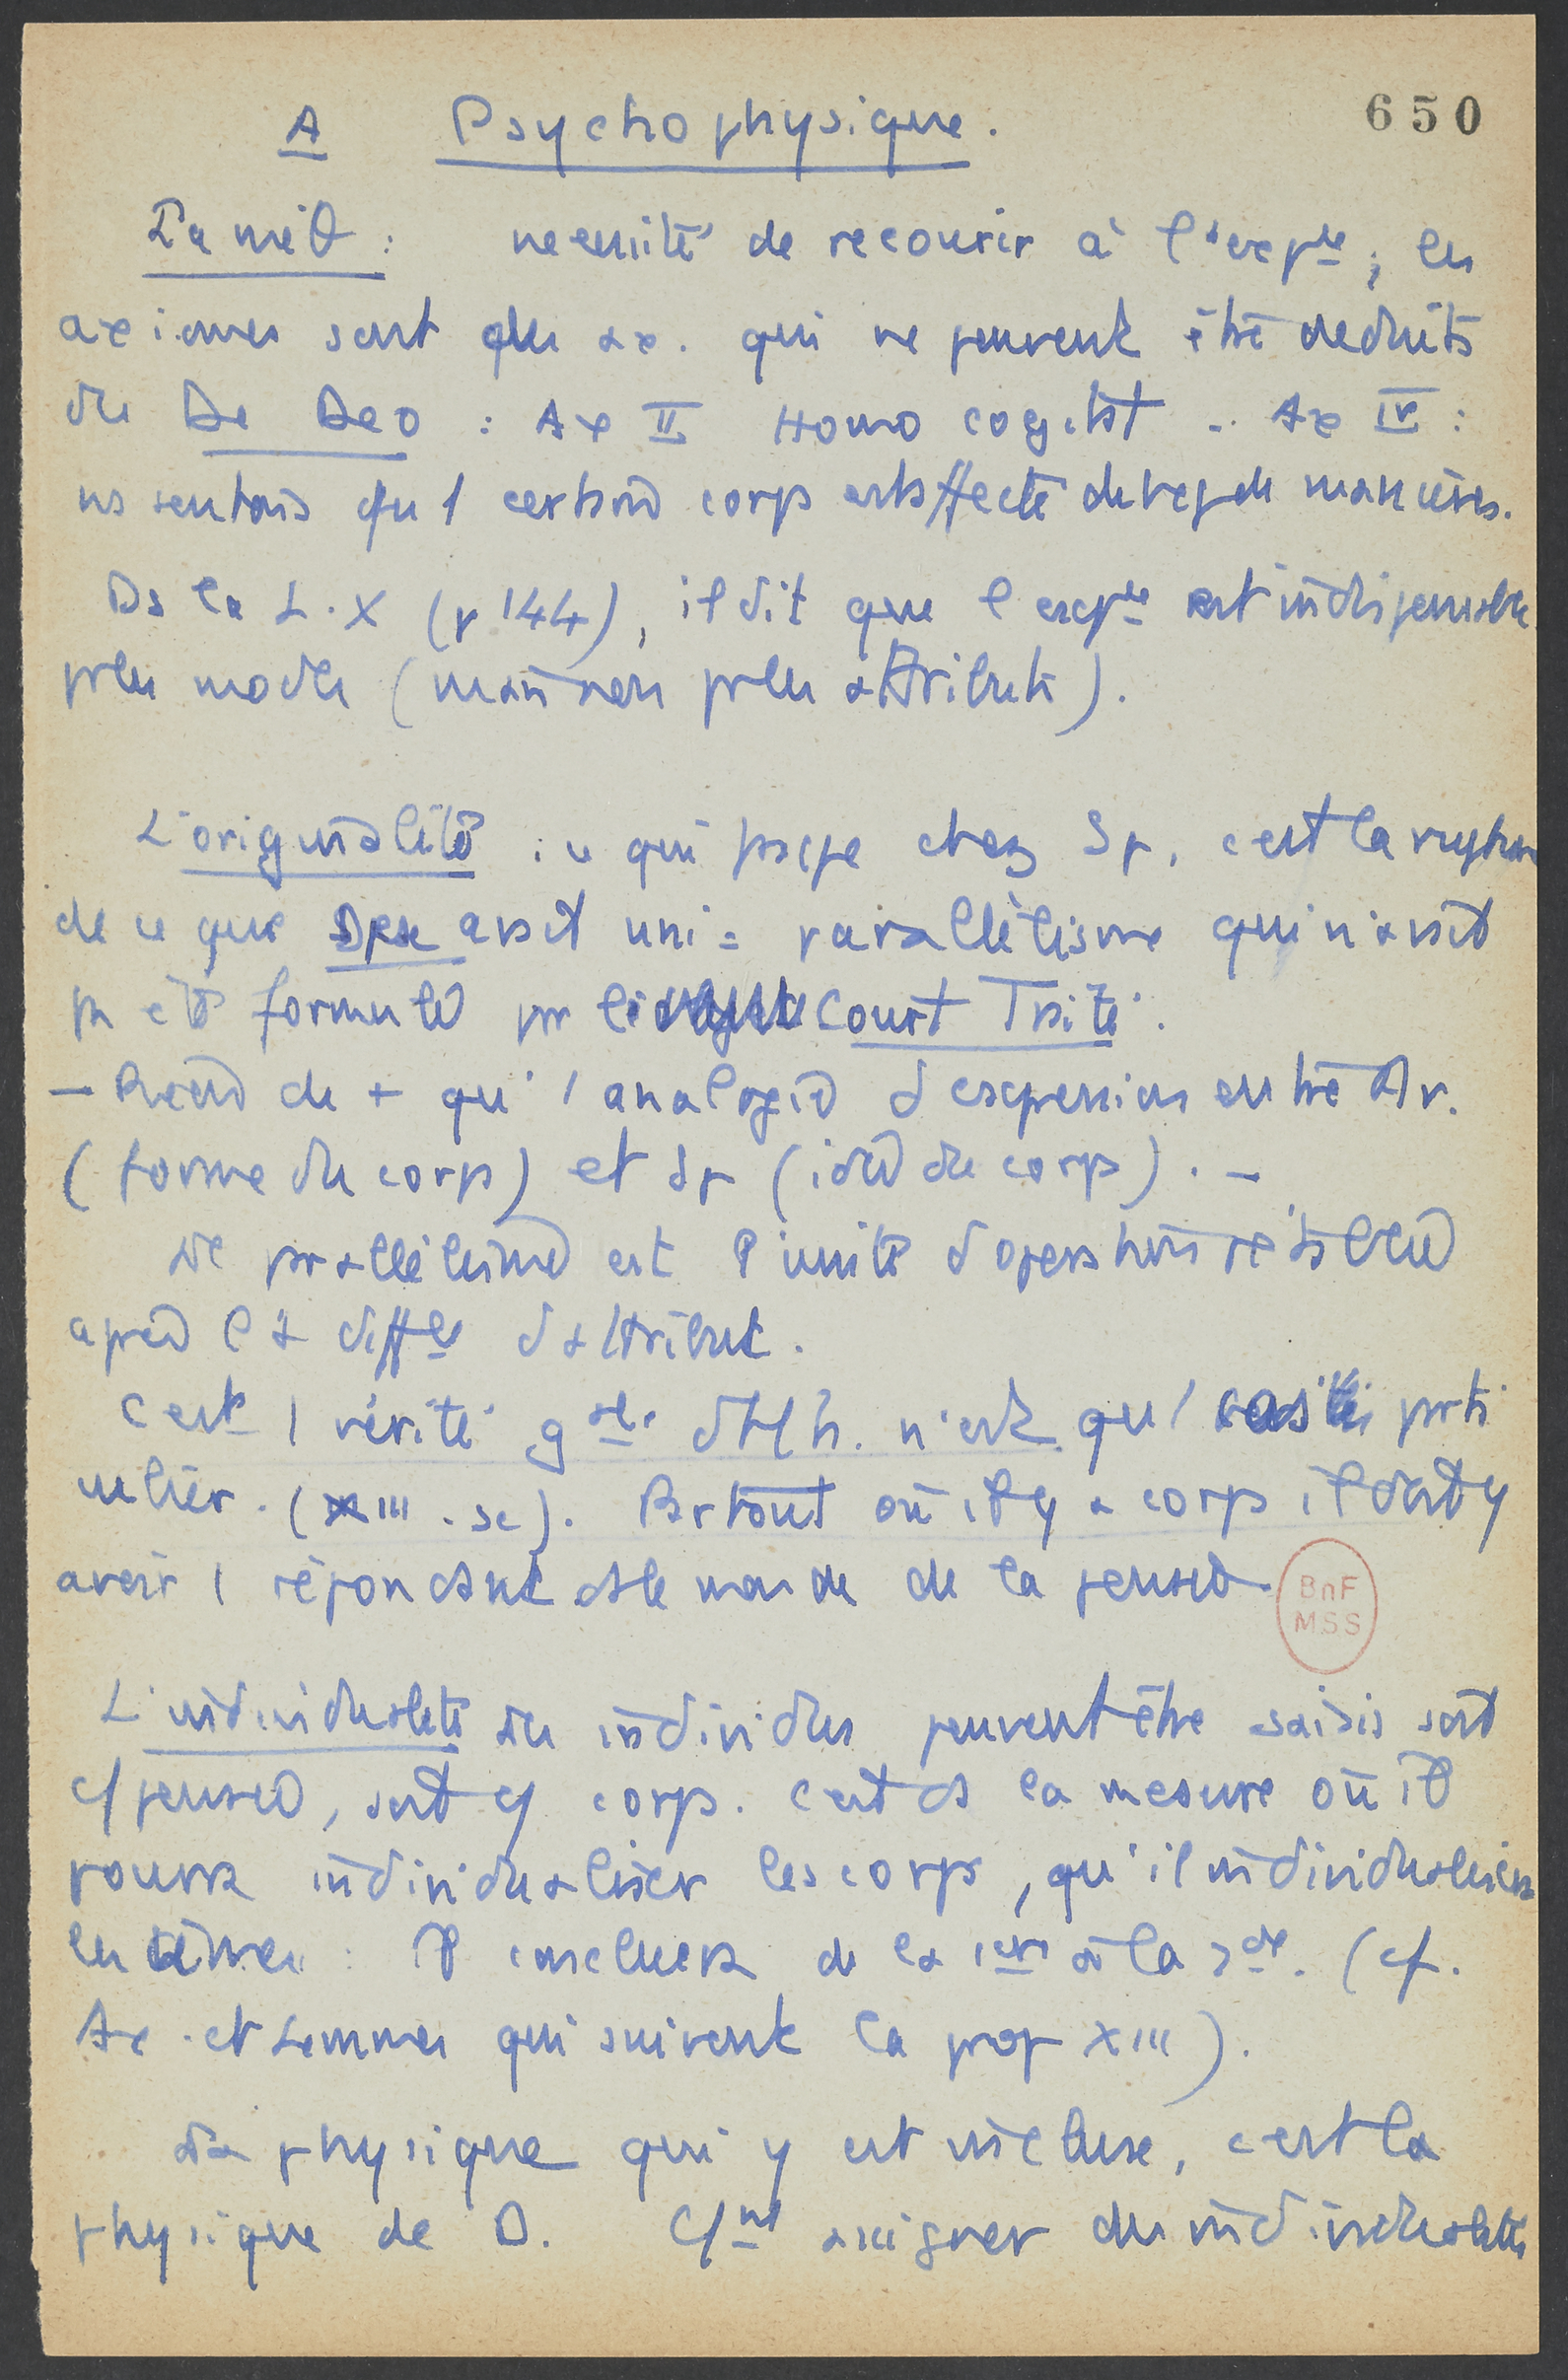 A Psychophysique.
650
La mét : necessité de recourir à l'expce ; les
axiomes sont des ax. qui ne peuvent être deduits
du De Deo : Ax II Homo cogitat .. Ax IV :
ns sentons qu'1 certain corps est affecté de bcp de manières.
Ds la L. X (p 144), il dit que l'expce est indispensable
pr les modes (mais non pr les attributs).
L'originalité : ce qui frappe chez Sp. c'est la rupture
de ce que Desc avait uni = parallélisme qui n'avait
pas été formulé par le Court Traité.
— Rien de + qu'1 analogie d'expression entre Ar.
(forme du corps) et Sp (idée du corps). —
Le parallélisme est l'unité d'opération rétablie
après la diffce d'attribut.
C'est 1 vérité gale dt l'h. n'est qu'1 cas parti
culier. (XIII. sc). Partout où il y a corps il doit y
avoir 1 répondant ds le monde de la pensée.
BnF
MSS
L'individualité des individus peuvent être saisis soit
c/ pensée, soit c/ corps. C'est ds la mesure où il
pourra individualiser les corps, qu'il individualisera
les âmes : Il conclura de la 1ère à la 2de. (cf.
Ax. et Lemmes qui suivent la prop XIII).
La physique qui y est incluse, c'est la
physique de D. C/nt assigner des individualités